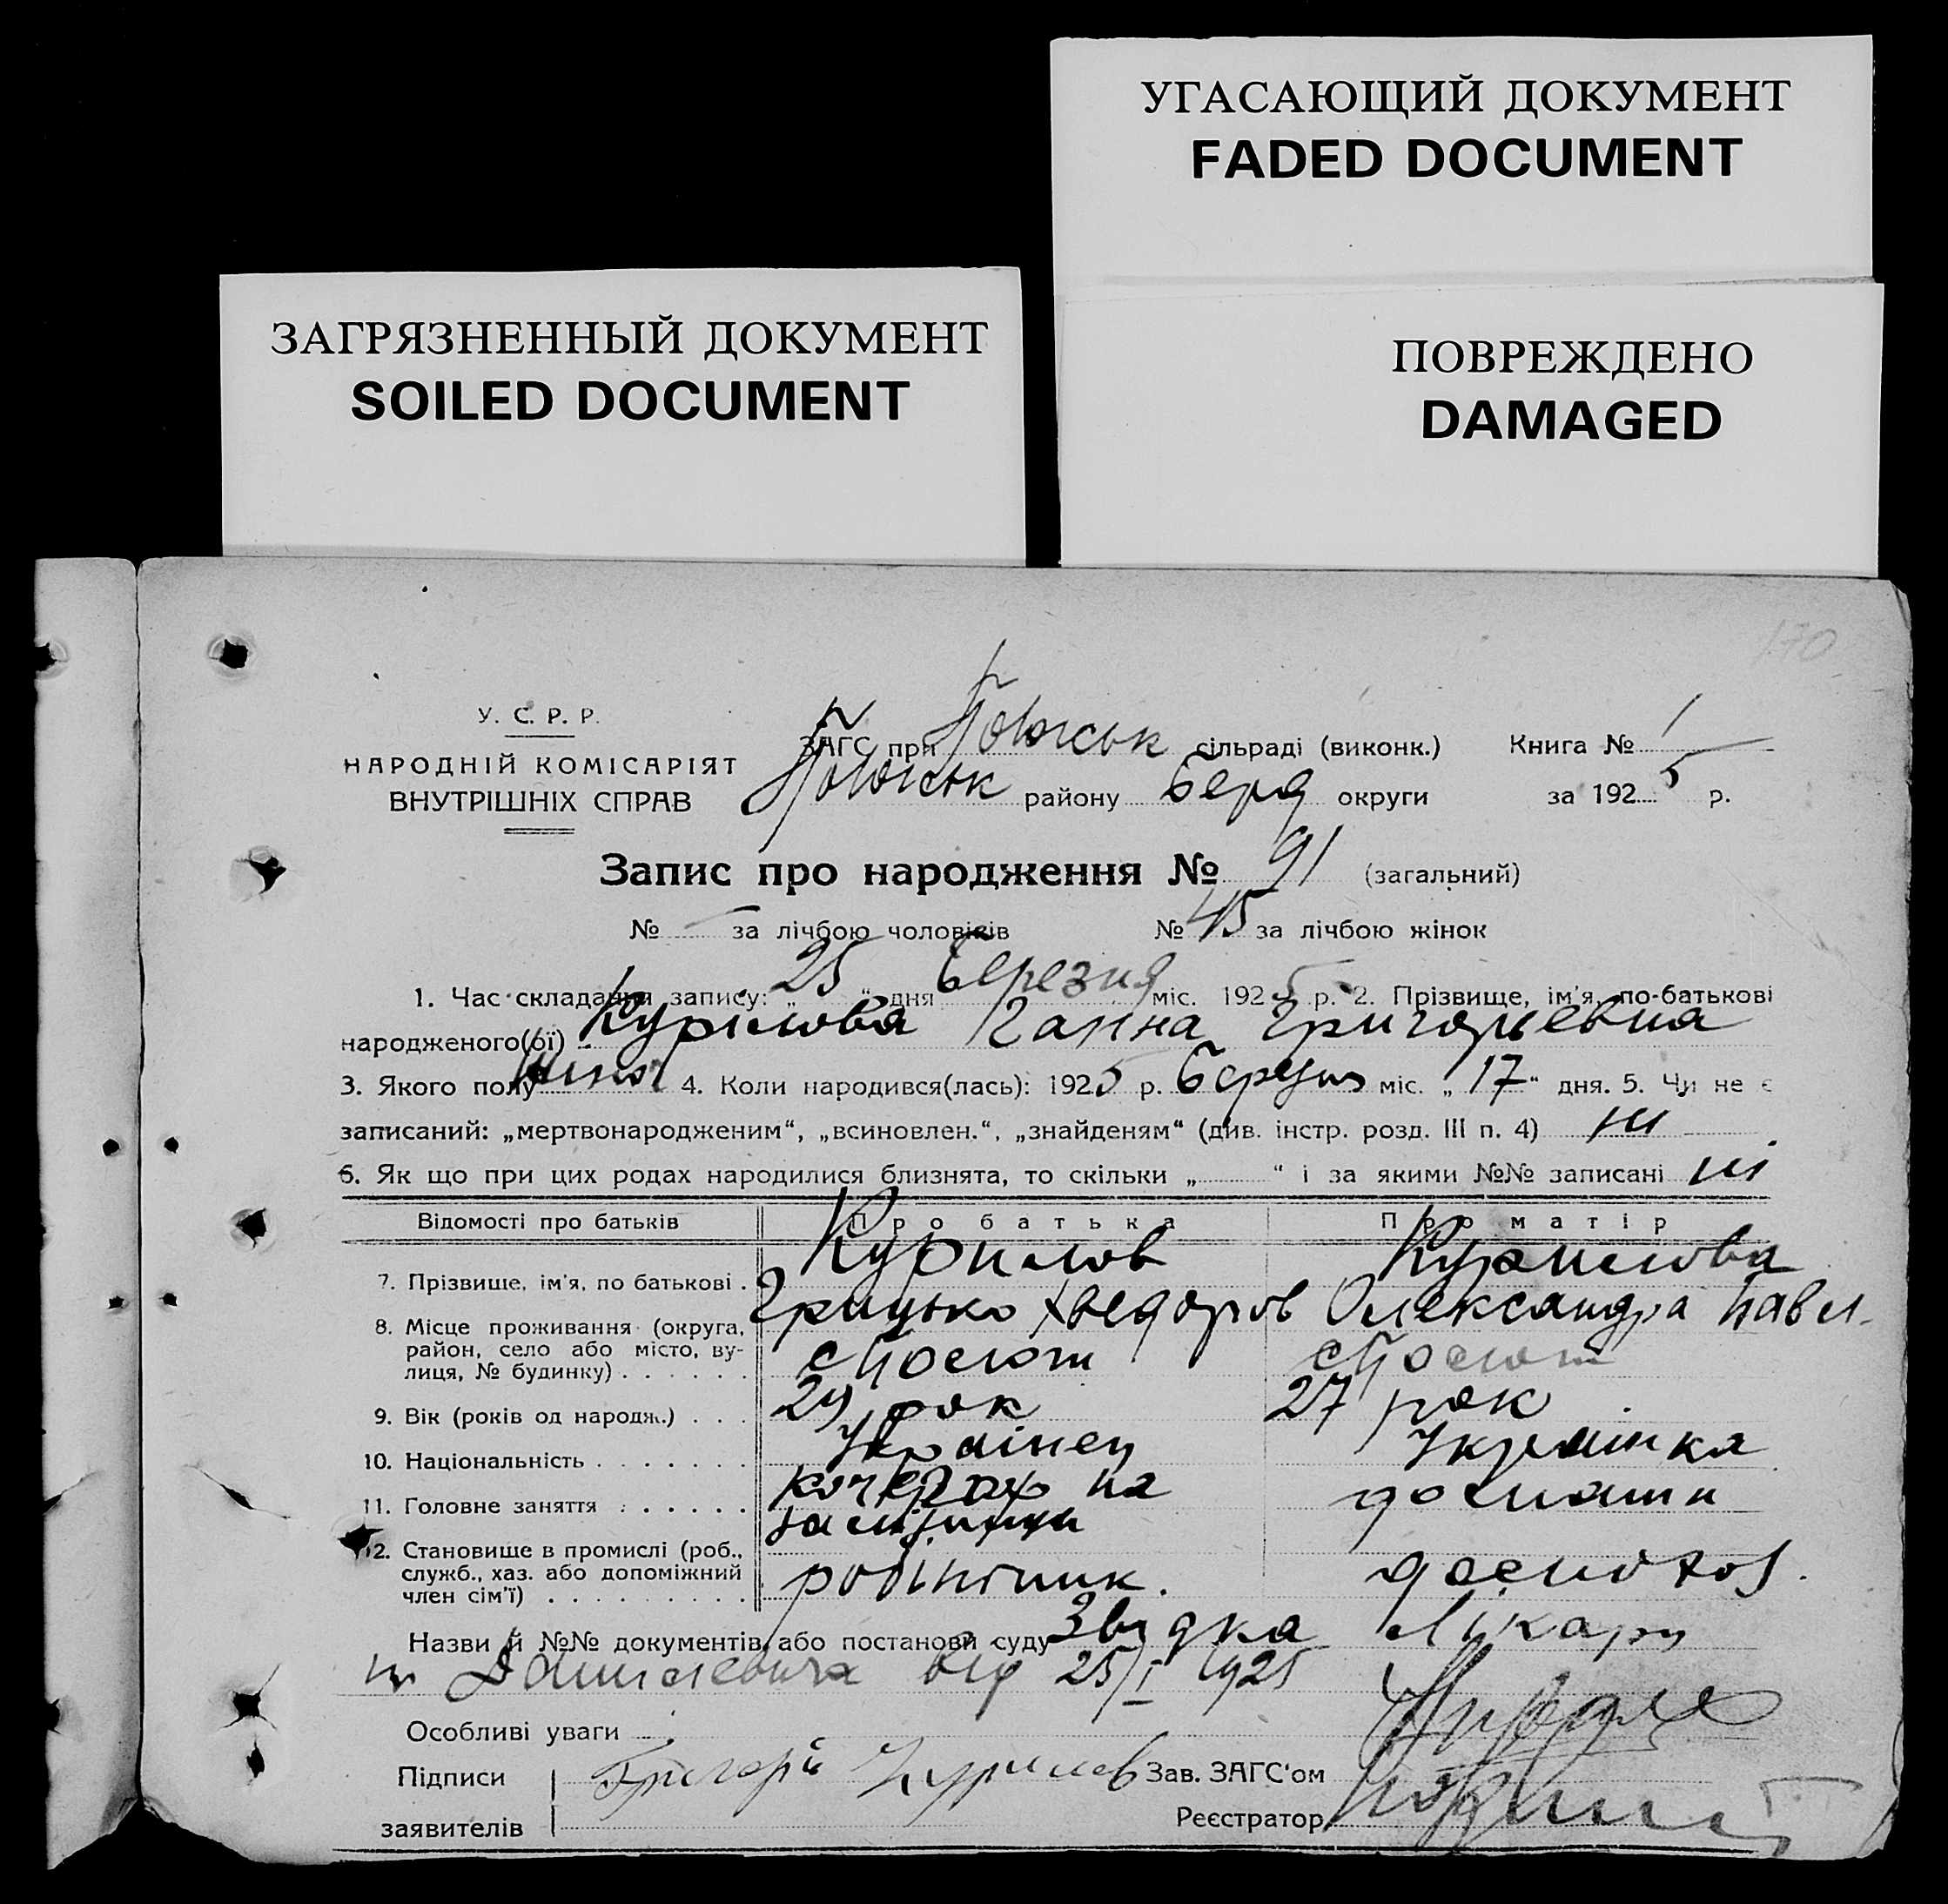 УГАСАЮЩИЙ ДОКУМЕНТ
FADED DOCUMENT
ЗАГРЯЗНЕННЫЙ ДОКУМЕНТ
SOILED DOCUMENT
ПОВРЕЖДЕНО
DAMAGED
170
У. С. Р. Р.
НАРОДНІЙ КОМІСАРІЯТ
ВНУТРІШНІХ СПРАВ
ЗАГС при сільраді (виконк.) Книга № 1
району Берд округи за 1925 р.
Запис про народження № 91 (загальний)
№ — за лічбою чоловіків № 45 за лічбою жінок
1. Час складання запису: „ 25 “ дня Березня міс. 1925 р. 2. Прізвище, ім'я, по-батькові
народженого(ої) Курилова Ганна Григорьевна
3. Якого полу 4. Коли народився(лась): 1925 р. Березня міс. „ 17 “ дня. 5. Чи не є
записаний: „мертвонародженим“, „всиновлен.“, „знайденям“ (див. інстр. розд. III п. 4) ні
6. Як що при цих родах народилися близнята, то скільки „ “ і за якими №№ записані ні
Відомості про батьків Про батька Про матір
7. Прізвище, ім'я, по батькові . Курилов Грицько Хведоров Курилова Олександра Павл.
8. Місце проживання (округа,
район, село або місто, ву-
лиця, № будинку) . . . . . .
9. Вік (років од народж.) . . . 29 рок 27 рок
10. Національність . . . . . . . Українец Українка
11. Головне заняття . . . . . . кочегар на
12. Становище в промислі (роб.,
служб., хаз. або допоміжний
член сім'ї) . . . . . . . . . робітник.
Назви й №№ документів або постанови суду Звідка Лікаря
Данилевича від 25/ 1925
Особливі уваги
Підписи Григорій Курилов Зав. ЗАГС'ом
заявителів Реєстратор